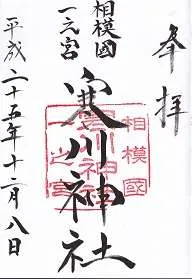 奉拝
相模國
一之宮
寒川神社
平成二十五年十二月八日
相模國
寒川神社
一之宮